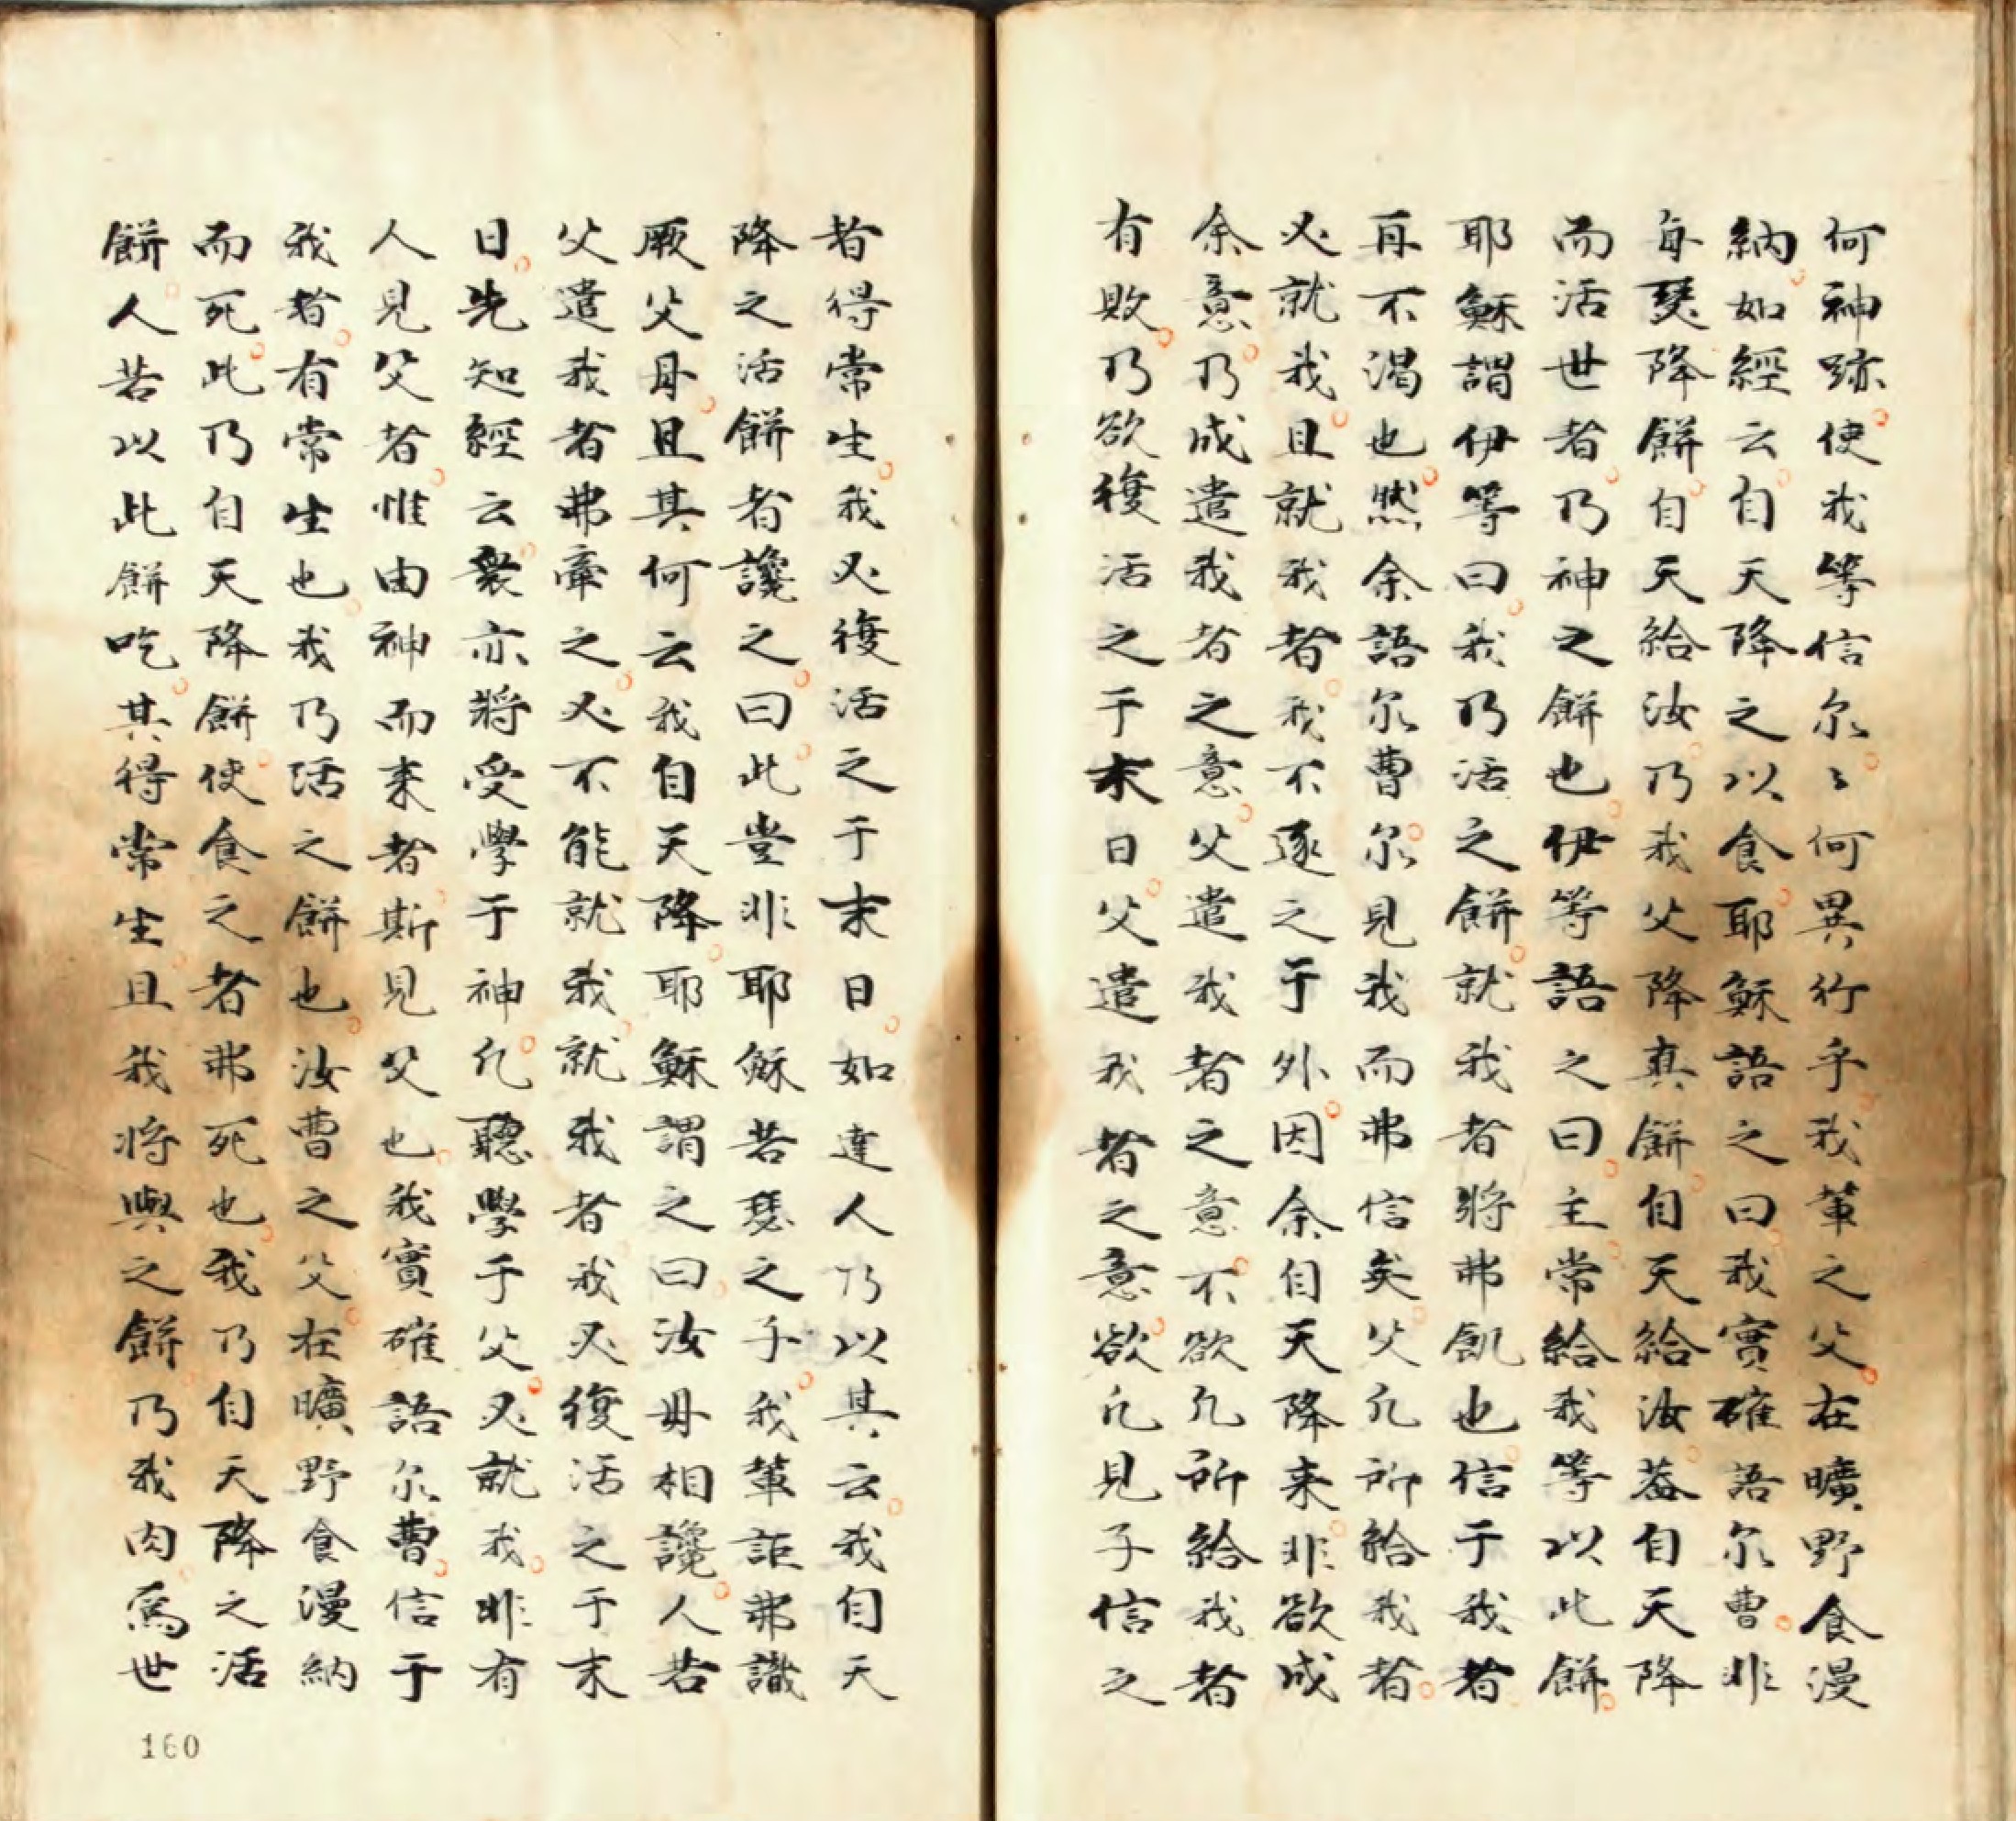 何神跡使我等信尔〻何異行乎我輩之父在曠野食漫
納如經云自天降之以食耶穌語之曰我實確語尔曹非
每瑟降餅自天給汝乃我父降真餅自天給汝蓋自天降
而活世者乃神之餅也伊等語之曰主常給我等以此餅
耶穌謂伊等曰我乃活之餅就我者將弗飢也信于我者
再不渴也然余語尔曹尔見我而弗信矣父凢所給我者
必就我且就我者我不逐之于外因余自天降来非欲成
余意乃成遣我者之意父遣我者之意不欲凢所給我者
有敗乃欲復活之于末日父遣我者之意欲凢見子信之
者得常生我必復活之于末日如達人乃以其云我自天
降之活餅者讒之曰此豈非耶穌若瑟之子我輩詎弗識
厥父母且其何云我自天降耶穌謂之曰汝毋相讒人若
父遣我者弗牽之必不能就我就我者我必復活之于末
日先知經云衆亦將受學于神凢聽學于父必就我非有
人見父者惟由神而来者斯見父也我實確語尔曹信于
我者有常生也我乃活之餅也汝曹之父在曠野食漫納
而死此乃自天降餅使食之者弗死也我乃自天降之活
餅人若以此餅吃其得常生且我将與之餅乃我肉為世
160